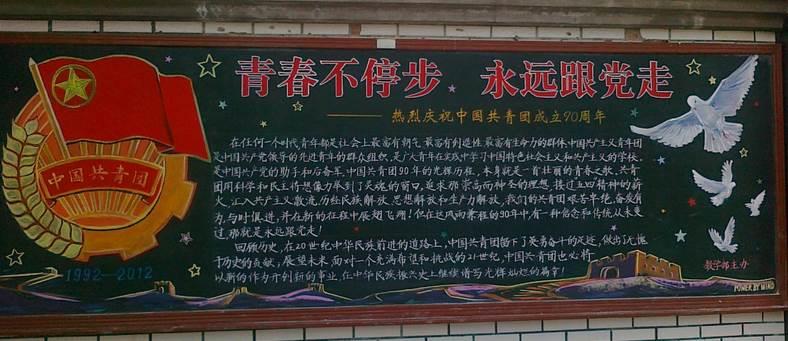 青春不停步 永远跟党走
——热烈庆祝中国共青团成立90周年
中国共青团
1992—2012
在任何一个时代,青年都是社会上最富有朝气、最富有创造性、最富有生命力的群体.中国共产主义青年团
是中国共产党领导的先进青年的群众组织,是广大青年在实践中学习中国特色社会主义和共产主义的学校,
是中国共产党的助手和后备军.中国共青团90年的光辉历程,本身就是一首壮丽的青春之歌.共青
团用科学和民主将想像力牵到了灵魂的窗口,追求那崇高而神圣的理想,接过五四精神的薪
火,汇入共产主义激流,历经民族解放、思想解放和生产力解放,我们的共青团艰苦卓绝,奋发有
为,与时俱进,并在新的征程中展翅飞翔!但在这风雨兼程的90年中,有一种信念和传统从未变
过,那就是永远跟党走!
回顾历史,在20世纪中华民族前进的道路上,中国共青团留下了英勇奋斗的足迹,做出了无愧
于历史的贡献;展望未来,面对一个充满希望和挑战的21世纪,中国共青团也必将
以新的作为开创新的事业,在中华民族振兴史上继续谱写光辉灿烂的篇章!
教学部主办
POWER BY MIND